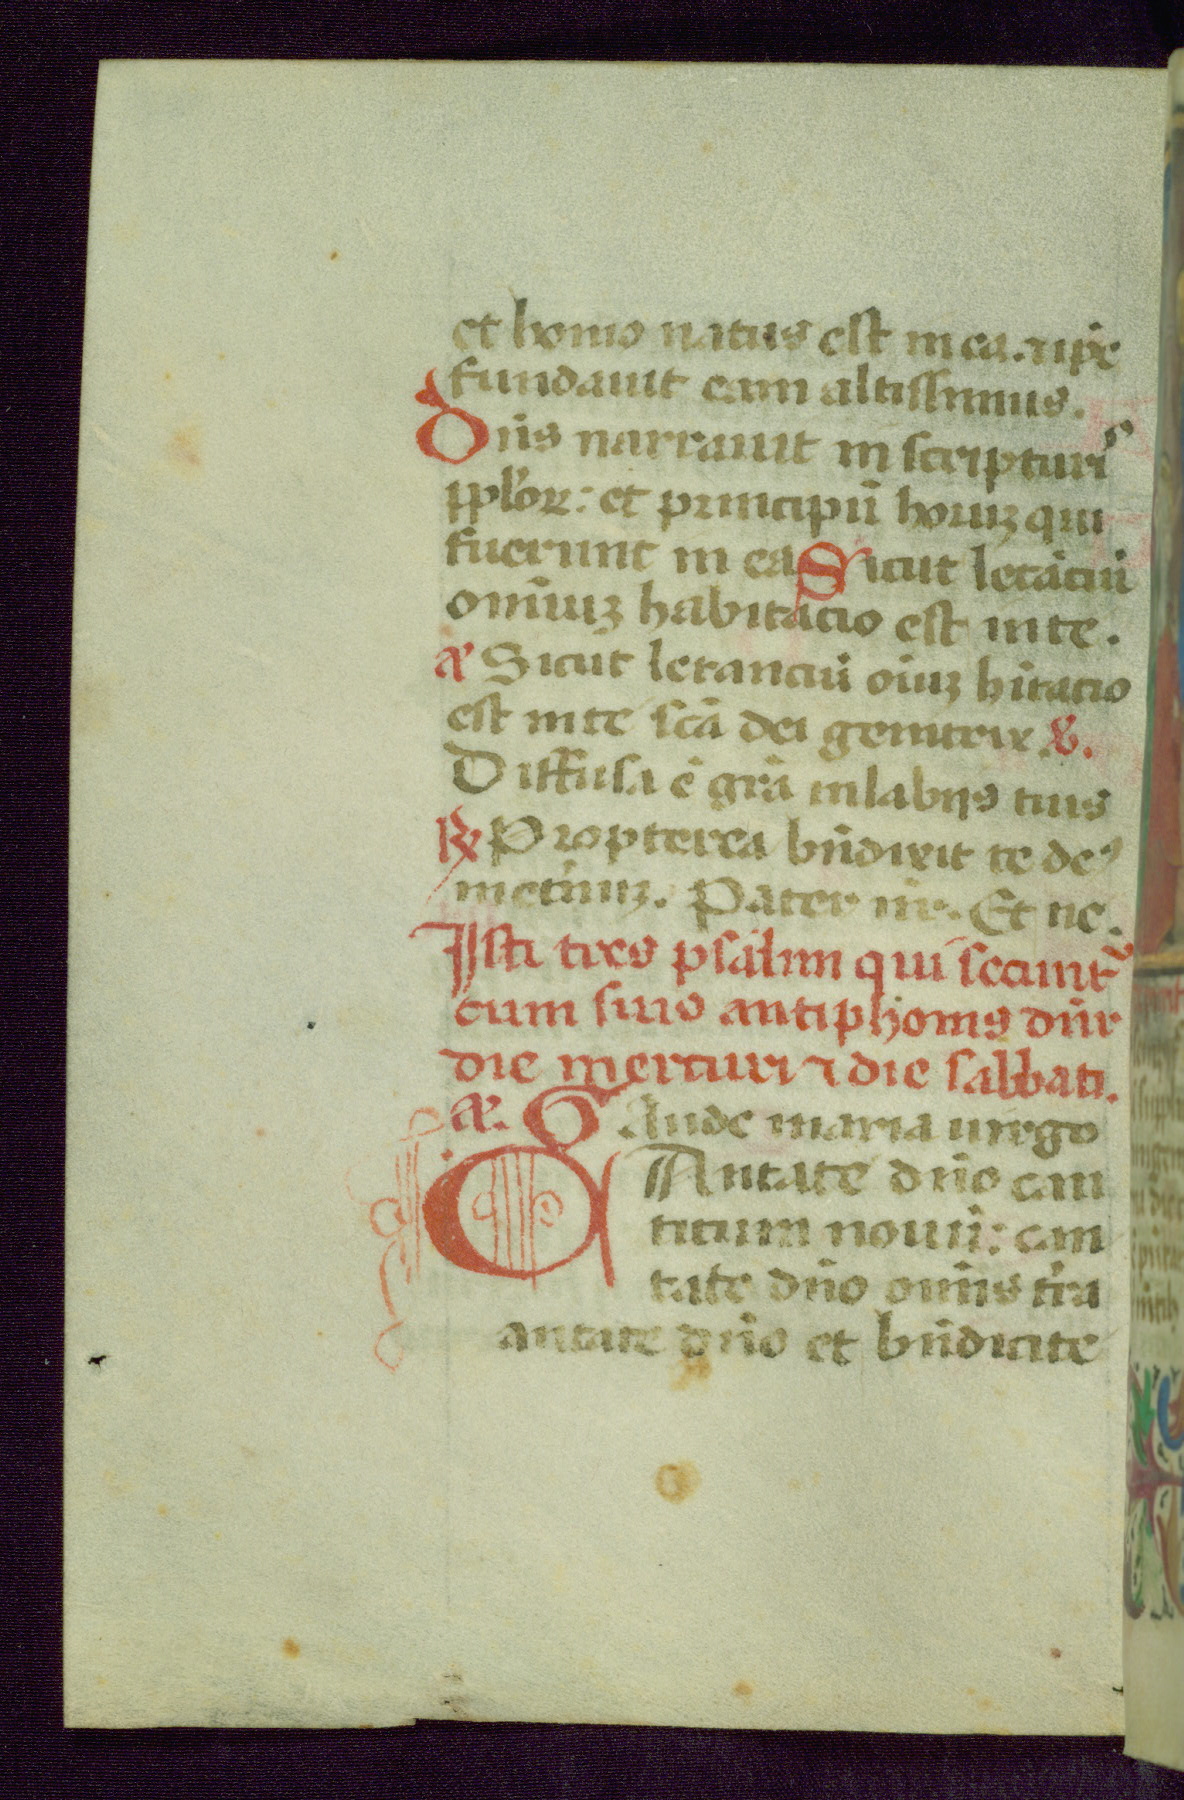 et homo natus est in ea. ⁊ ip̄e
fundauit eam altissimus.
Dn̄s narrauit in scripturis
ppl'oꝝ: et principū hoꝝuꝫ qui
fuerunt in ea Sicut letāciū
om̄iuꝫ habitacio est in te.
añ Sicut letanciū oīuꝫ hītacio
est in te sc̄a dei genitrix. ℣.
Diffusa ē grā in labijs tuis
℟ Propterea bn̄dixit te deꝰ
in et'nuꝫ. Pater nr̄. Et ne.
Isti tres psalmi qui secunt᷑
cum suis antiphonis dn̄r
die mercurij ⁊ die sabbati.
añ. Gaude maria uirgo
CAntate dn̄o can
ticum nouū: can
tate dn̄o omīs t'ra
antate dn̄o et bn̄dicite